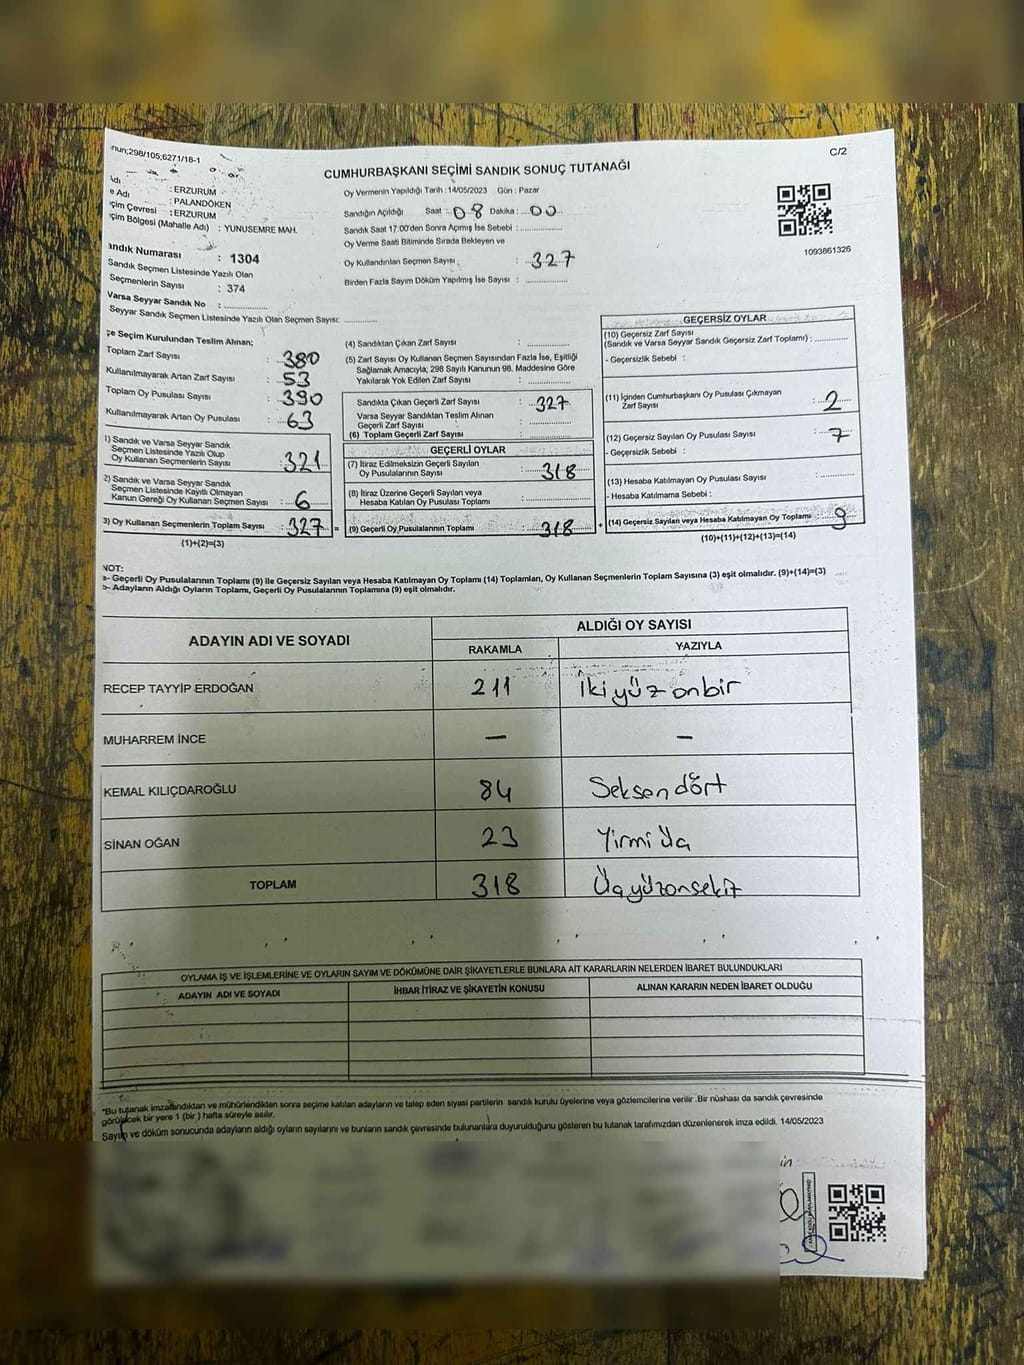 nun;298/105;6271/18-1
C/2
CUMHURBAŞKANI SEÇİMİ SANDIK SONUÇ TUTANAĞI
Adı : ERZURUM
e Adı : PALANDÖKEN
çim Çevresi : ERZURUM
çim Bölgesi (Mahalle Adı) : YUNUSEMRE MAH.
Oy Vermenin Yapıldığı Tarih : 14/05/2023 Gün : Pazar
Sandığın Açıldığı Saat : 08 Dakika : 00
Sandık Saat 17.00'den Sonra Açımış İse Sebebi :
Oy Verme Saati Bitiminde Sırada Bekleyen ve
Oy Kullandırılan Seçmen Sayısı : 327
Birden Fazla Sayım Döküm Yapılmış İse Sayısı :
1093861326
andık Numarası : 1304
Sandık Seçmen Listesinde Yazılı Olan
Seçmenlerin Sayısı : 374
Varsa Seyyar Sandık No :
Seyyar Sandık Seçmen Listesinde Yazılı Olan Seçmen Sayısı:
çe Seçim Kurulundan Teslim Alınan;
Toplam Zarf Sayısı : 380
Kullanılmayarak Artan Zarf Sayısı : 53
Toplam Oy Pusulası Sayısı : 390
Kullanılmayarak Artan Oy Pusulası : 63
1) Sandık ve Varsa Seyyar Sandık
Seçmen Listesinde Yazılı Olup
Oy Kullanan Seçmenlerin Sayısı : 321
2) Sandık ve Varsa Seyyar Sandık
Seçmen Listesinde Kayıtlı Olmayan
Kanun Gereği Oy Kullanan Seçmen Sayısı : 6
3) Oy Kullanan Seçmenlerin Toplam Sayısı : 327 =
(1)+(2)=(3)
(4) Sandıktan Çıkan Zarf Sayısı :
(5) Zarf Sayısı Oy Kullanan Seçmen Sayısından Fazla İse, Eşitliği
Sağlamak Amacıyla, 298 Sayılı Kanunun 98. Maddesine Göre
Yakılarak Yok Edilen Zarf Sayısı :
Sandıkta Çıkan Geçerli Zarf Sayısı : 327
Varsa Seyyar Sandıktan Teslim Alınan
Geçerli Zarf Sayısı :
(6) Toplam Geçerli Zarf Sayısı :
GEÇERLİ OYLAR
(7) İtiraz Edilmeksizin Geçerli Sayılan
Oy Pusulalarının Sayısı : 318
(8) İtiraz Üzerine Geçerli Sayılan veya
Hesaba Katılan Oy Pusulası Toplamı :
(9) Geçerli Oy Pusulalarının Toplamı : 318 +
GEÇERSİZ OYLAR
(10) Geçersiz Zarf Sayısı
(Sandık ve Varsa Seyyar Sandık Geçersiz Zarf Toplamı) :
- Geçersizlik Sebebi :
(11) İçinden Cumhurbaşkanı Oy Pusulası Çıkmayan
Zarf Sayısı : 2
(12) Geçersiz Sayılan Oy Pusulası Sayısı : 7
- Geçersizlik Sebebi :
(13) Hesaba Katılmayan Oy Pusulası Sayısı :
- Hesaba Katılmama Sebebi :
(14) Geçersiz Sayılan veya Hesaba Katılmayan Oy Toplamı : 9
(10)+(11)+(12)+(13)=(14)
NOT:
a- Geçerli Oy Pusulalarının Toplamı (9) ile Geçersiz Sayılan veya Hesaba Katılmayan Oy Toplamı (14) Toplamları, Oy Kullanan Seçmenlerin Toplam Sayısına (3) eşit olmalıdır. (9)+(14)=(3)
b- Adayların Aldığı Oyların Toplamı, Geçerli Oy Pusulalarının Toplamına (9) eşit olmalıdır.
ADAYIN ADI VE SOYADI ALDIĞI OY SAYISI
RAKAMLA YAZIYLA
RECEP TAYYİP ERDOĞAN 211 İkiyüz onbir
MUHARREM İNCE — —
KEMAL KILIÇDAROĞLU 84 Seksen dört
SİNAN OĞAN 23 Yirmi Üç
TOPLAM 318 Üçyüzonsekiz
OYLAMA İŞ VE İŞLEMLERİNE VE OYLARIN SAYIM VE DÖKÜMÜNE DAİR ŞİKAYETLERLE BUNLARA AİT KARARLARIN NELERDEN İBARET BULUNDUKLARI
ADAYIN ADI VE SOYADI İHBAR İTİRAZ VE ŞİKAYETİN KONUSU ALINAN KARARIN NEDEN İBARET OLDUĞU
*Bu tutanak imzalandıktan ve mühürlendikten sonra seçime katılan adayların ve talep eden siyasi partilerin sandık kurulu üyelerine veya gözlemcilerine verilir .Bir nüshası da sandık çevresinde
görülecek bir yere 1 (bir ) hafta süreyle asılır.
Sayım ve döküm sonucunda adayların aldığı oyların sayılarını ve bunların sandık çevresinde bulunanlara duyurulduğunu gösteren bu tutanak tarafımızdan düzenlenerek imza edildi. 14/05/2023